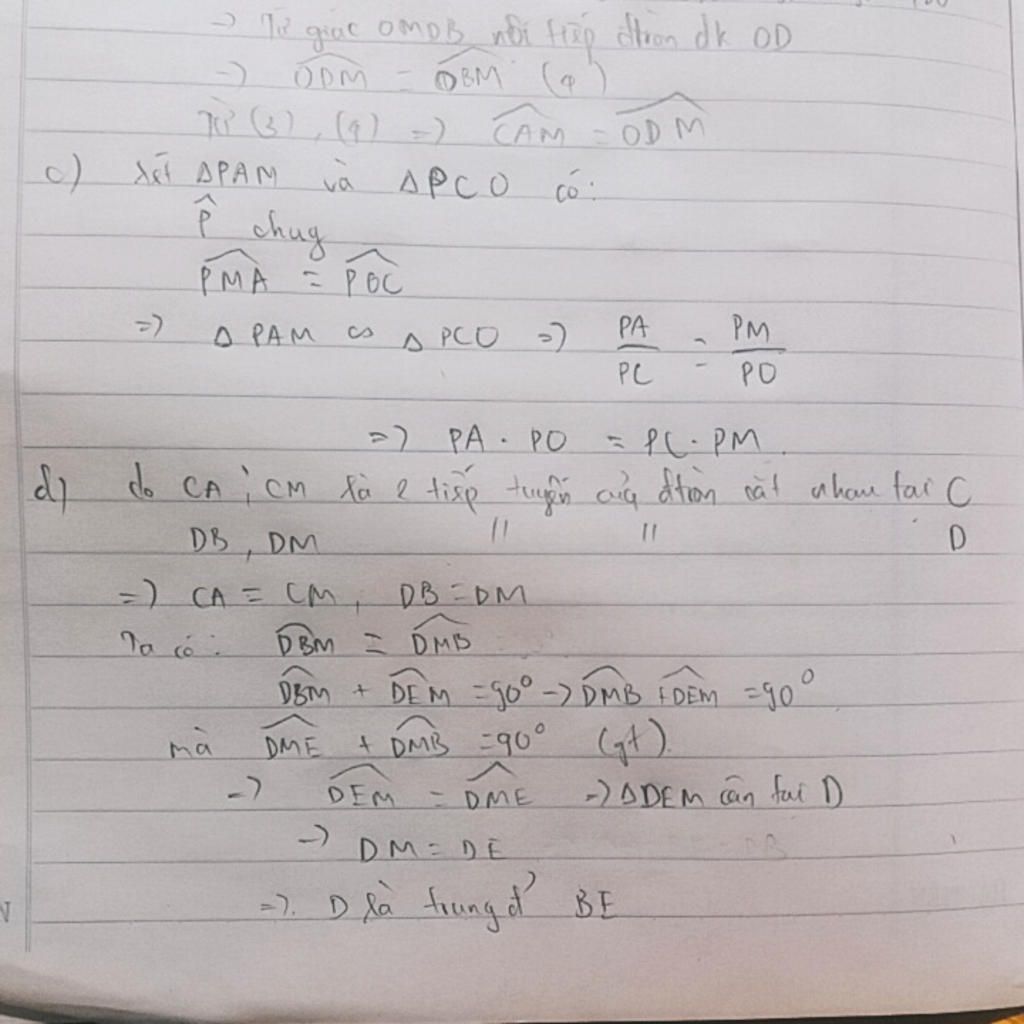 → Tứ giác OMDB nội tiếp đtròn đk OD
→ ODM = OBM (4)
Từ (3), (4) => CAM = ODM
c) Xét ΔPAM và ΔPCO có:
P chug
PMA = POC
=> ΔPAM ∽ ΔPCO => PA/PC = PM/PO
=> PA . PO = PC . PM.
d) do CA ; CM là 2 tiếp tuyến của đtròn cắt nhau tại C
DB , DM " " D
=> CA = CM , DB = DM
Ta có: DBM = DMB
DBM + DEM = 90° → DMB + DEM = 90°
mà DME + DMB = 90° (gt).
→ DEM = DME → ΔDEM cân tại D
→ DM = DE
=> D là trung đ' BE